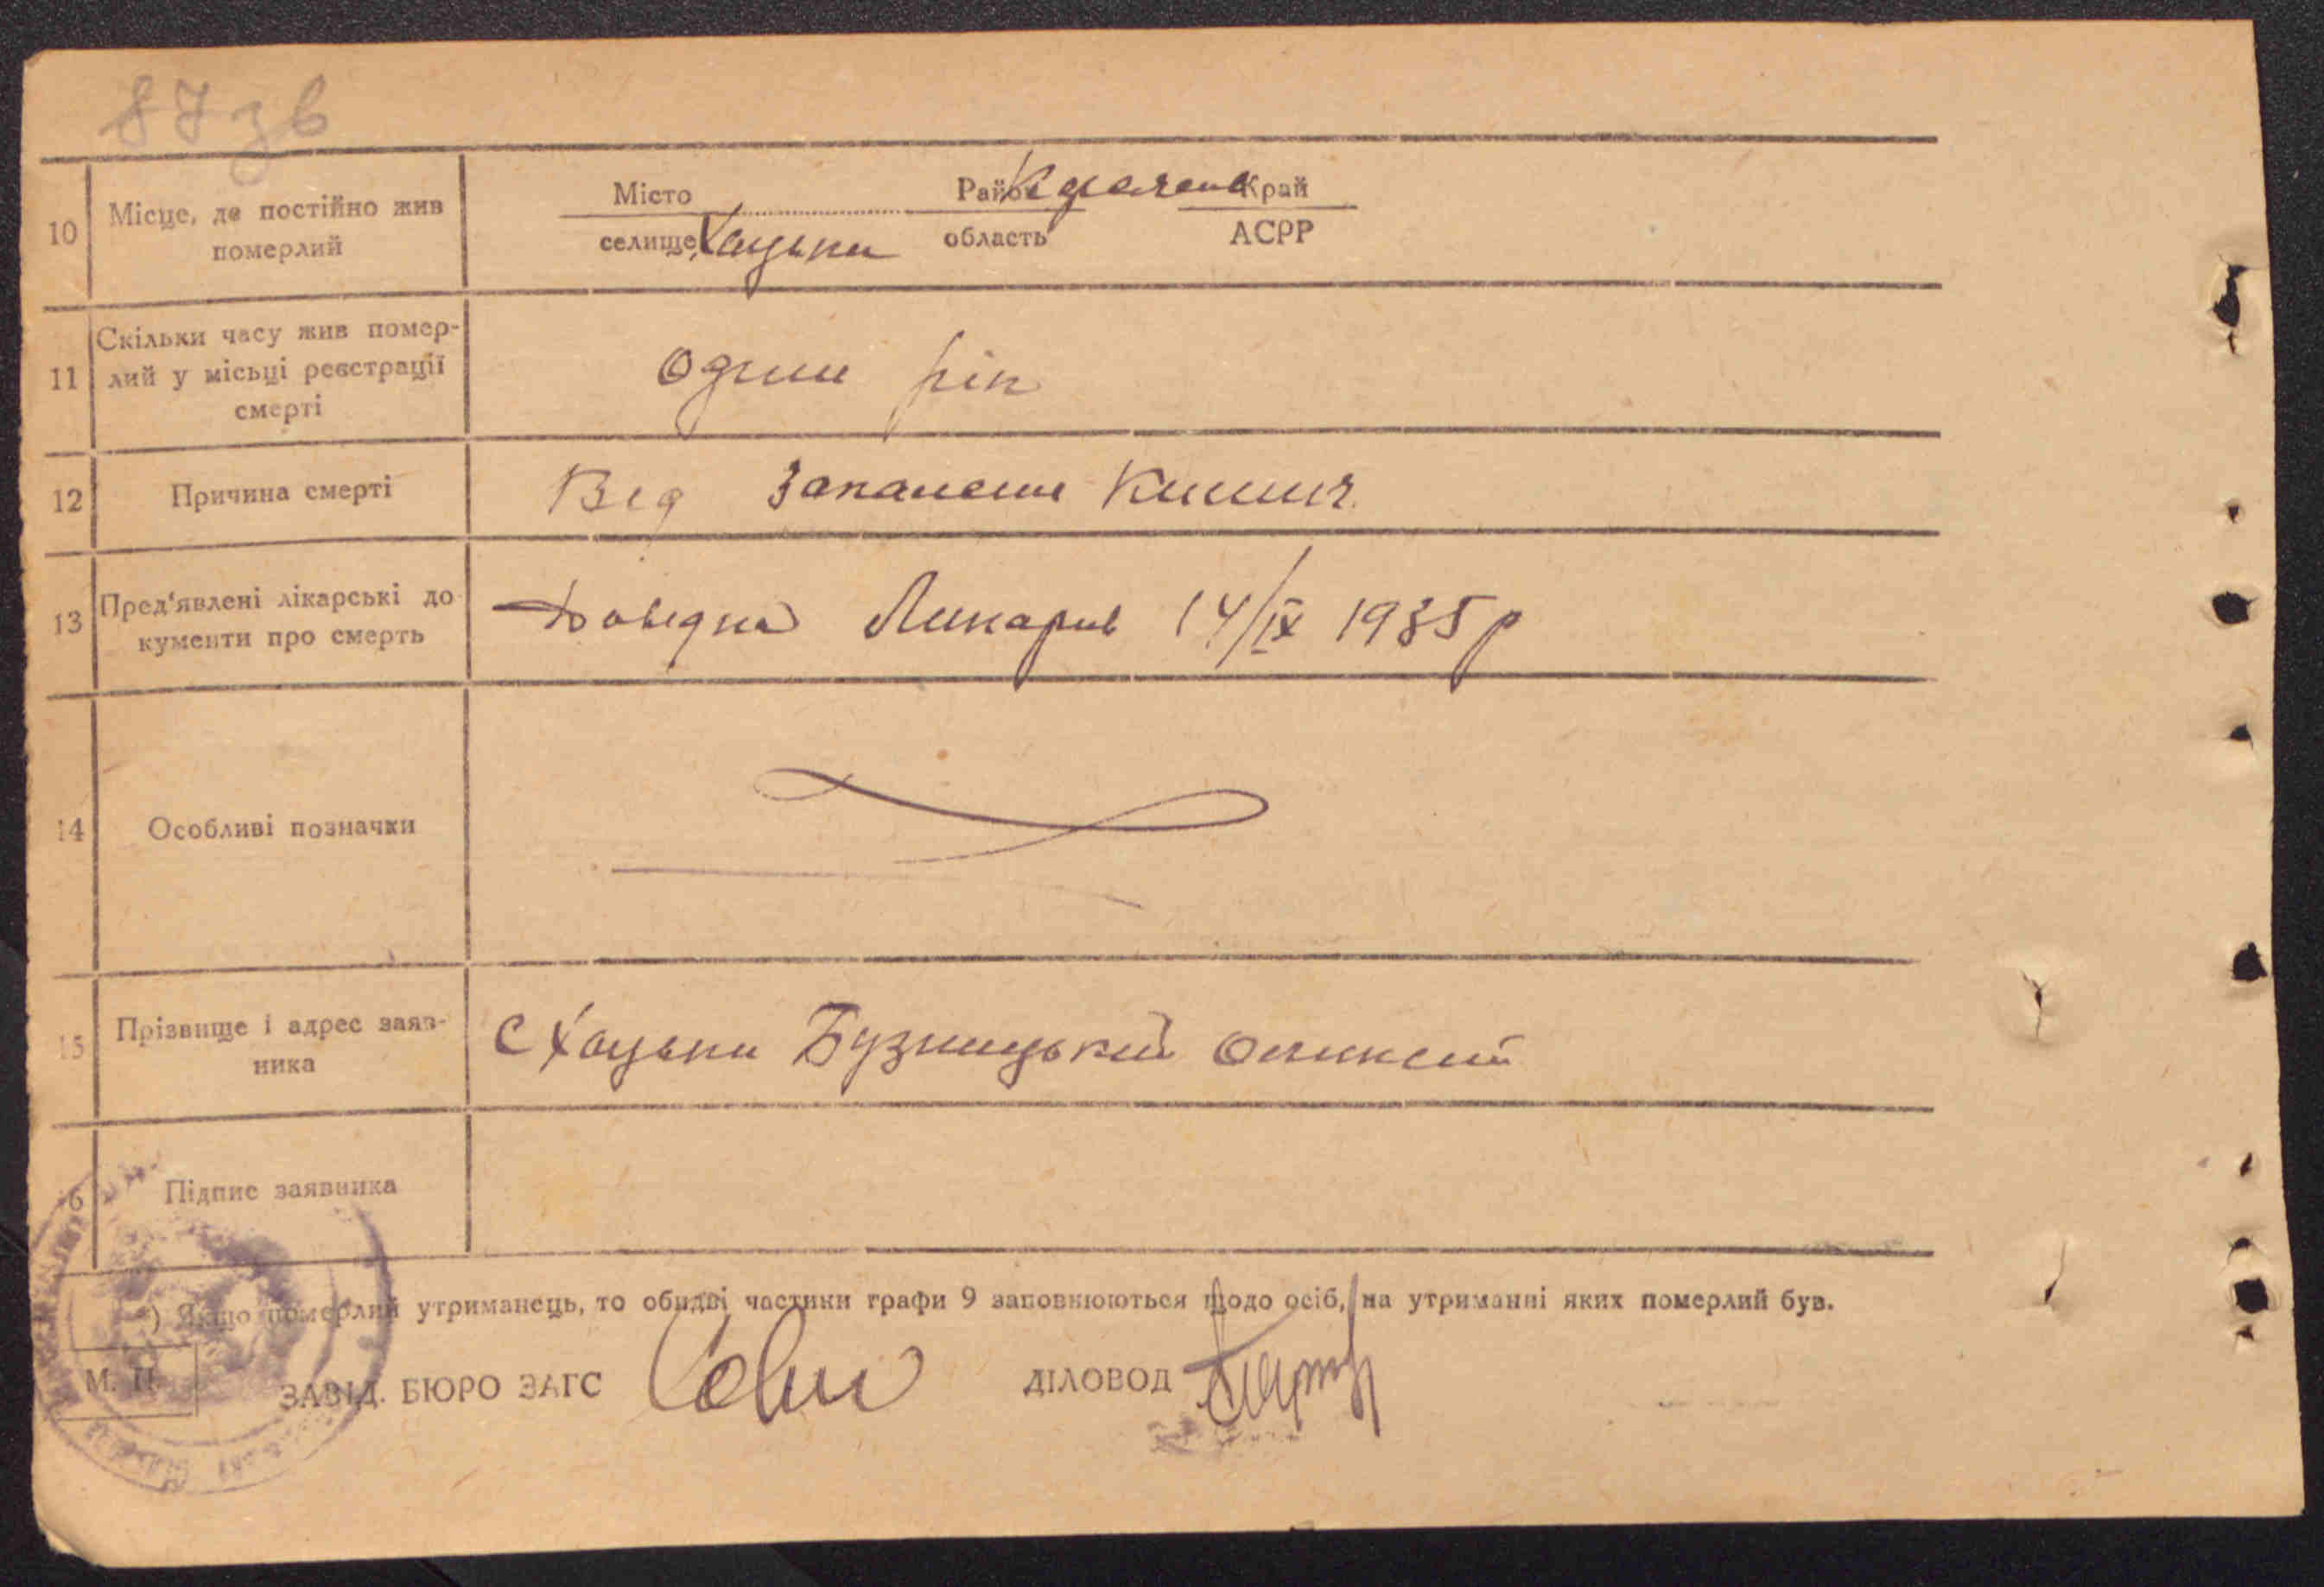 87зв
10 Місце, де постійно жив
померлий
Місто Район Край
селище Хацьки область АСРР
11 Скільки часу жив помер-
лий у місьці реєстрації
смерті
один рік
12 Причина смерті
Вед Запалення Кишич.
13 Пред'явлені лікарські до
кументи про смерть
Доведка Ликарив 14/IX 1935р
14 Особливі позначки
15 Прізвище і адрес заяв-
ника
С Хацьки Бузницький
16 Підпис заявника
) Якщо померлий утриманець, то обидві частини графи 9 заповнюються щодо осіб, на утриманні яких померлий був.
М. П.
ЗАВІД. БЮРО ЗАГС
ДІЛОВОД